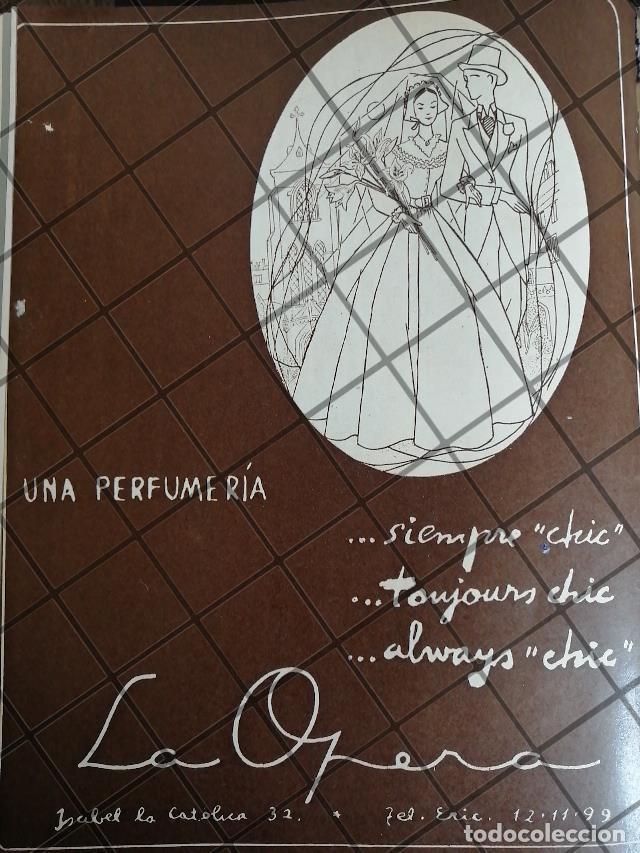 UNA PERFUMERÍA
...siempre "chic"
...toujours chic
...always "chic"
La Opera
Isabel la Católica 32. * Tel. Eric. 12·11·99
todocoleccion